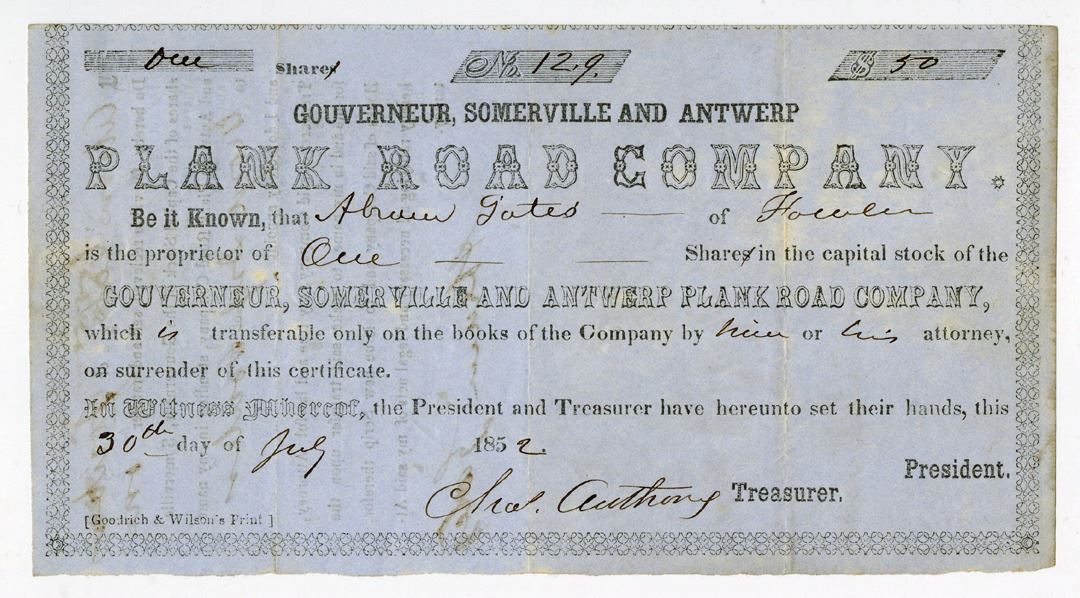 One Shares No. 129. $ 50
GOUVERNEUR, SOMERVILLE AND ANTWERP
PLANK ROAD COMPANY.
Be it Known, that Abram Gates of Fowler
is the proprietor of One Shares in the capital stock of the
GOUVERNEUR, SOMERVILLE AND ANTWERP PLANK ROAD COMPANY,
which is transferable only on the books of the Company by him or his attorney,
on surrender of this certificate.
In Witness Whereof, the President and Treasurer have hereunto set their hands, this
30th day of July 1852.
President.
Chas. Anthony Treasurer.
[Goodrich & Wilson's Print ]